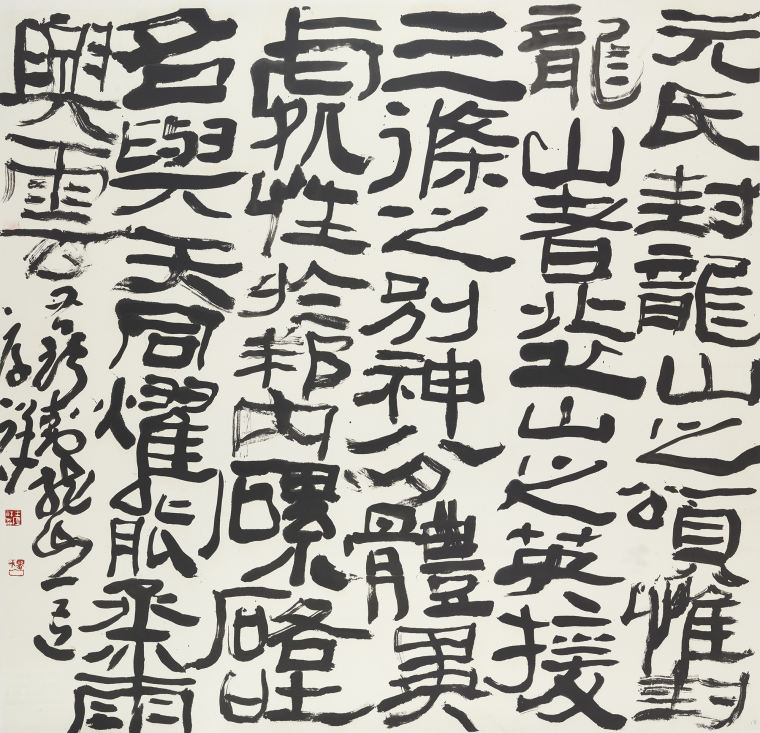 元氏封龍山之頌惟封
龍山者北岳之英援
三條之別神分體異
處在於邦內磥硌吐
名與天同耀能烝雨
興雲
龍山